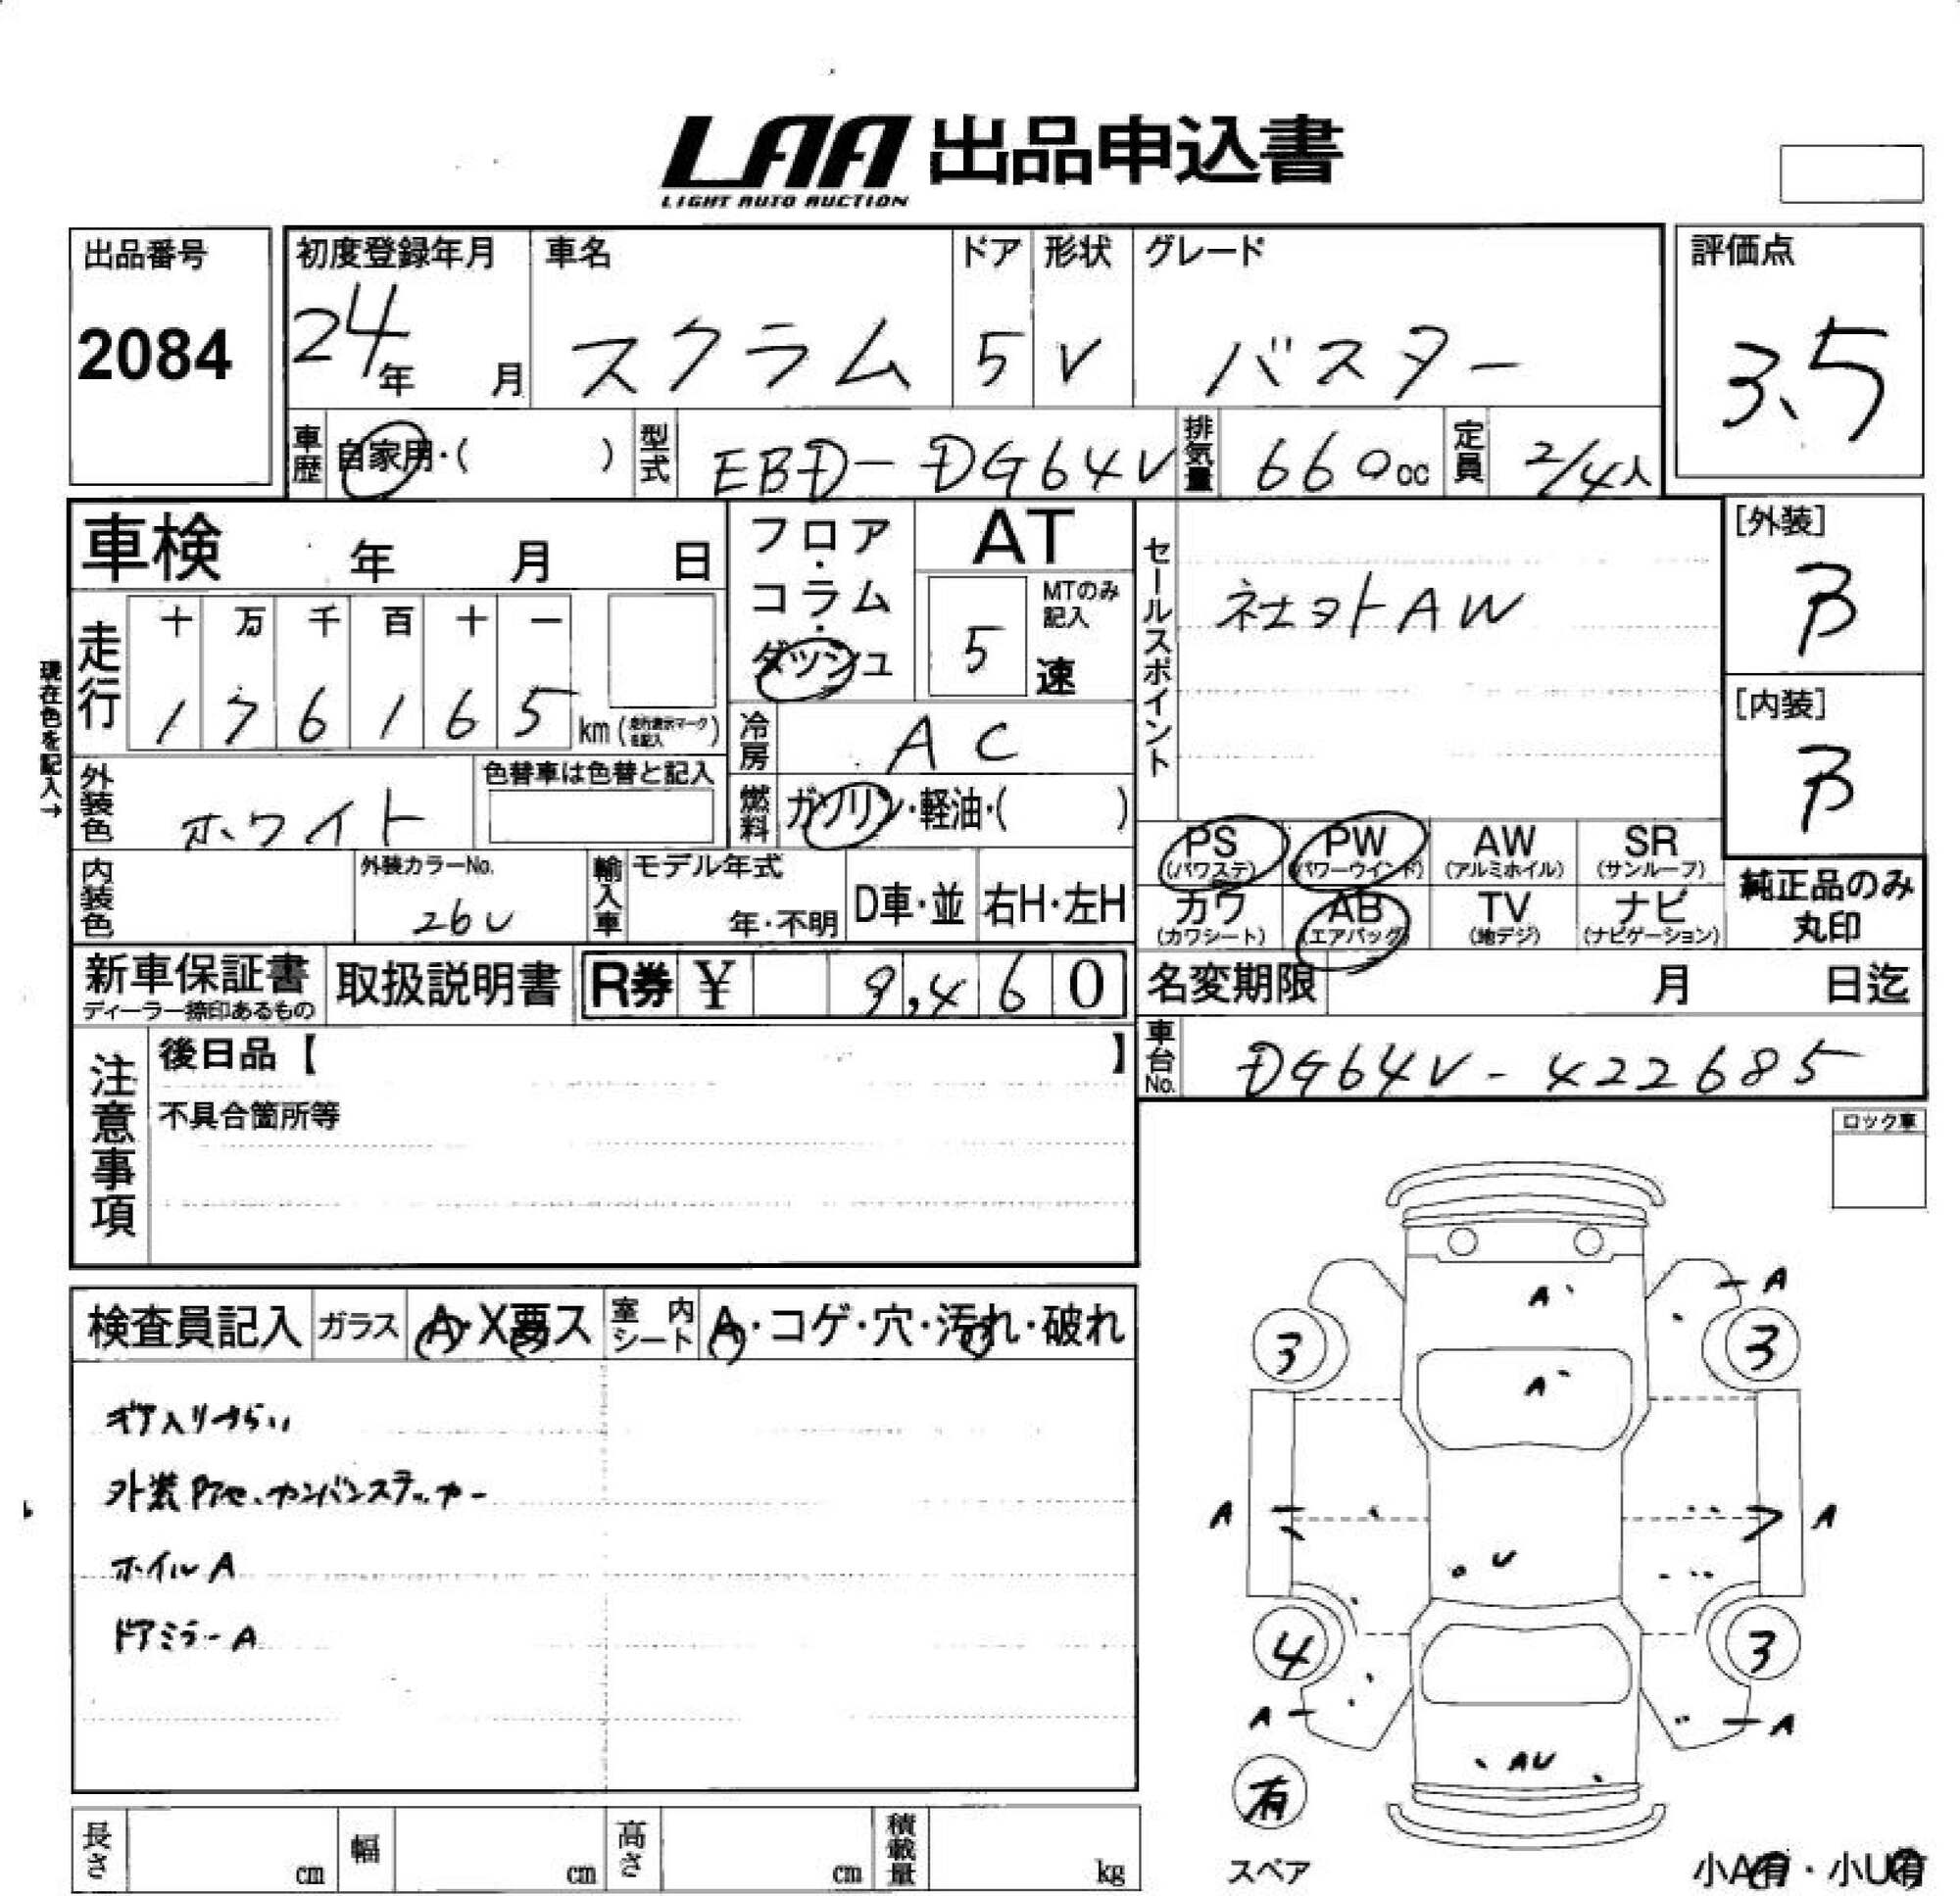 LAA 出品申込書
LIGHT AUTO AUCTION
出品番号
2084
初度登録年月
24年 月
車名
スクラム
ドア
5
形状
V
グレード
バスター
評価点
3.5
車歴 自家用・( )
型式 EBD-DG64V
排気量 660cc
定員 2/4人
車検 年 月 日
フロア・コラム・ダッシュ
AT
MTのみ記入
5速
セールスポイント
社ヨトAW
[外装]
B
[内装]
B
現在色を記入→
走行
十 万 千 百 十 一
1 7 6 1 6 5 km (走行表示マークを記入)
冷房 AC
外装色 ホワイト
色替車は色替と記入
燃料 ガソリン・軽油・( )
PS (パワステ)
PW (パワーウインド)
AW (アルミホイル)
SR (サンルーフ)
カワ (カワシート)
AB (エアバッグ)
TV (地デジ)
ナビ (ナビゲーション)
純正品のみ
丸印
内装色
外装カラーNo.
26U
輸入車 モデル年式
年・不明
D車・並
右H・左H
新車保証書
ディーラー捺印あるもの
取扱説明書
R券 ¥ 9,460
名変期限 月 日迄
車台No. DG64V-422685
注意事項
後日品【 】
不具合箇所等
ロック車
検査員記入
ガラス A・X要ス
室内シート A・コゲ・穴・汚れ・破れ
ギア入りづらい
外装Pアセ、カンバンステッカー
ホイルA
ドアミラーA
A
A
3
3
A
A
A
U
4
3
A
A
AU
有
スペア
小A有・小U有
長さ cm
幅 cm
高さ cm
積載量 kg